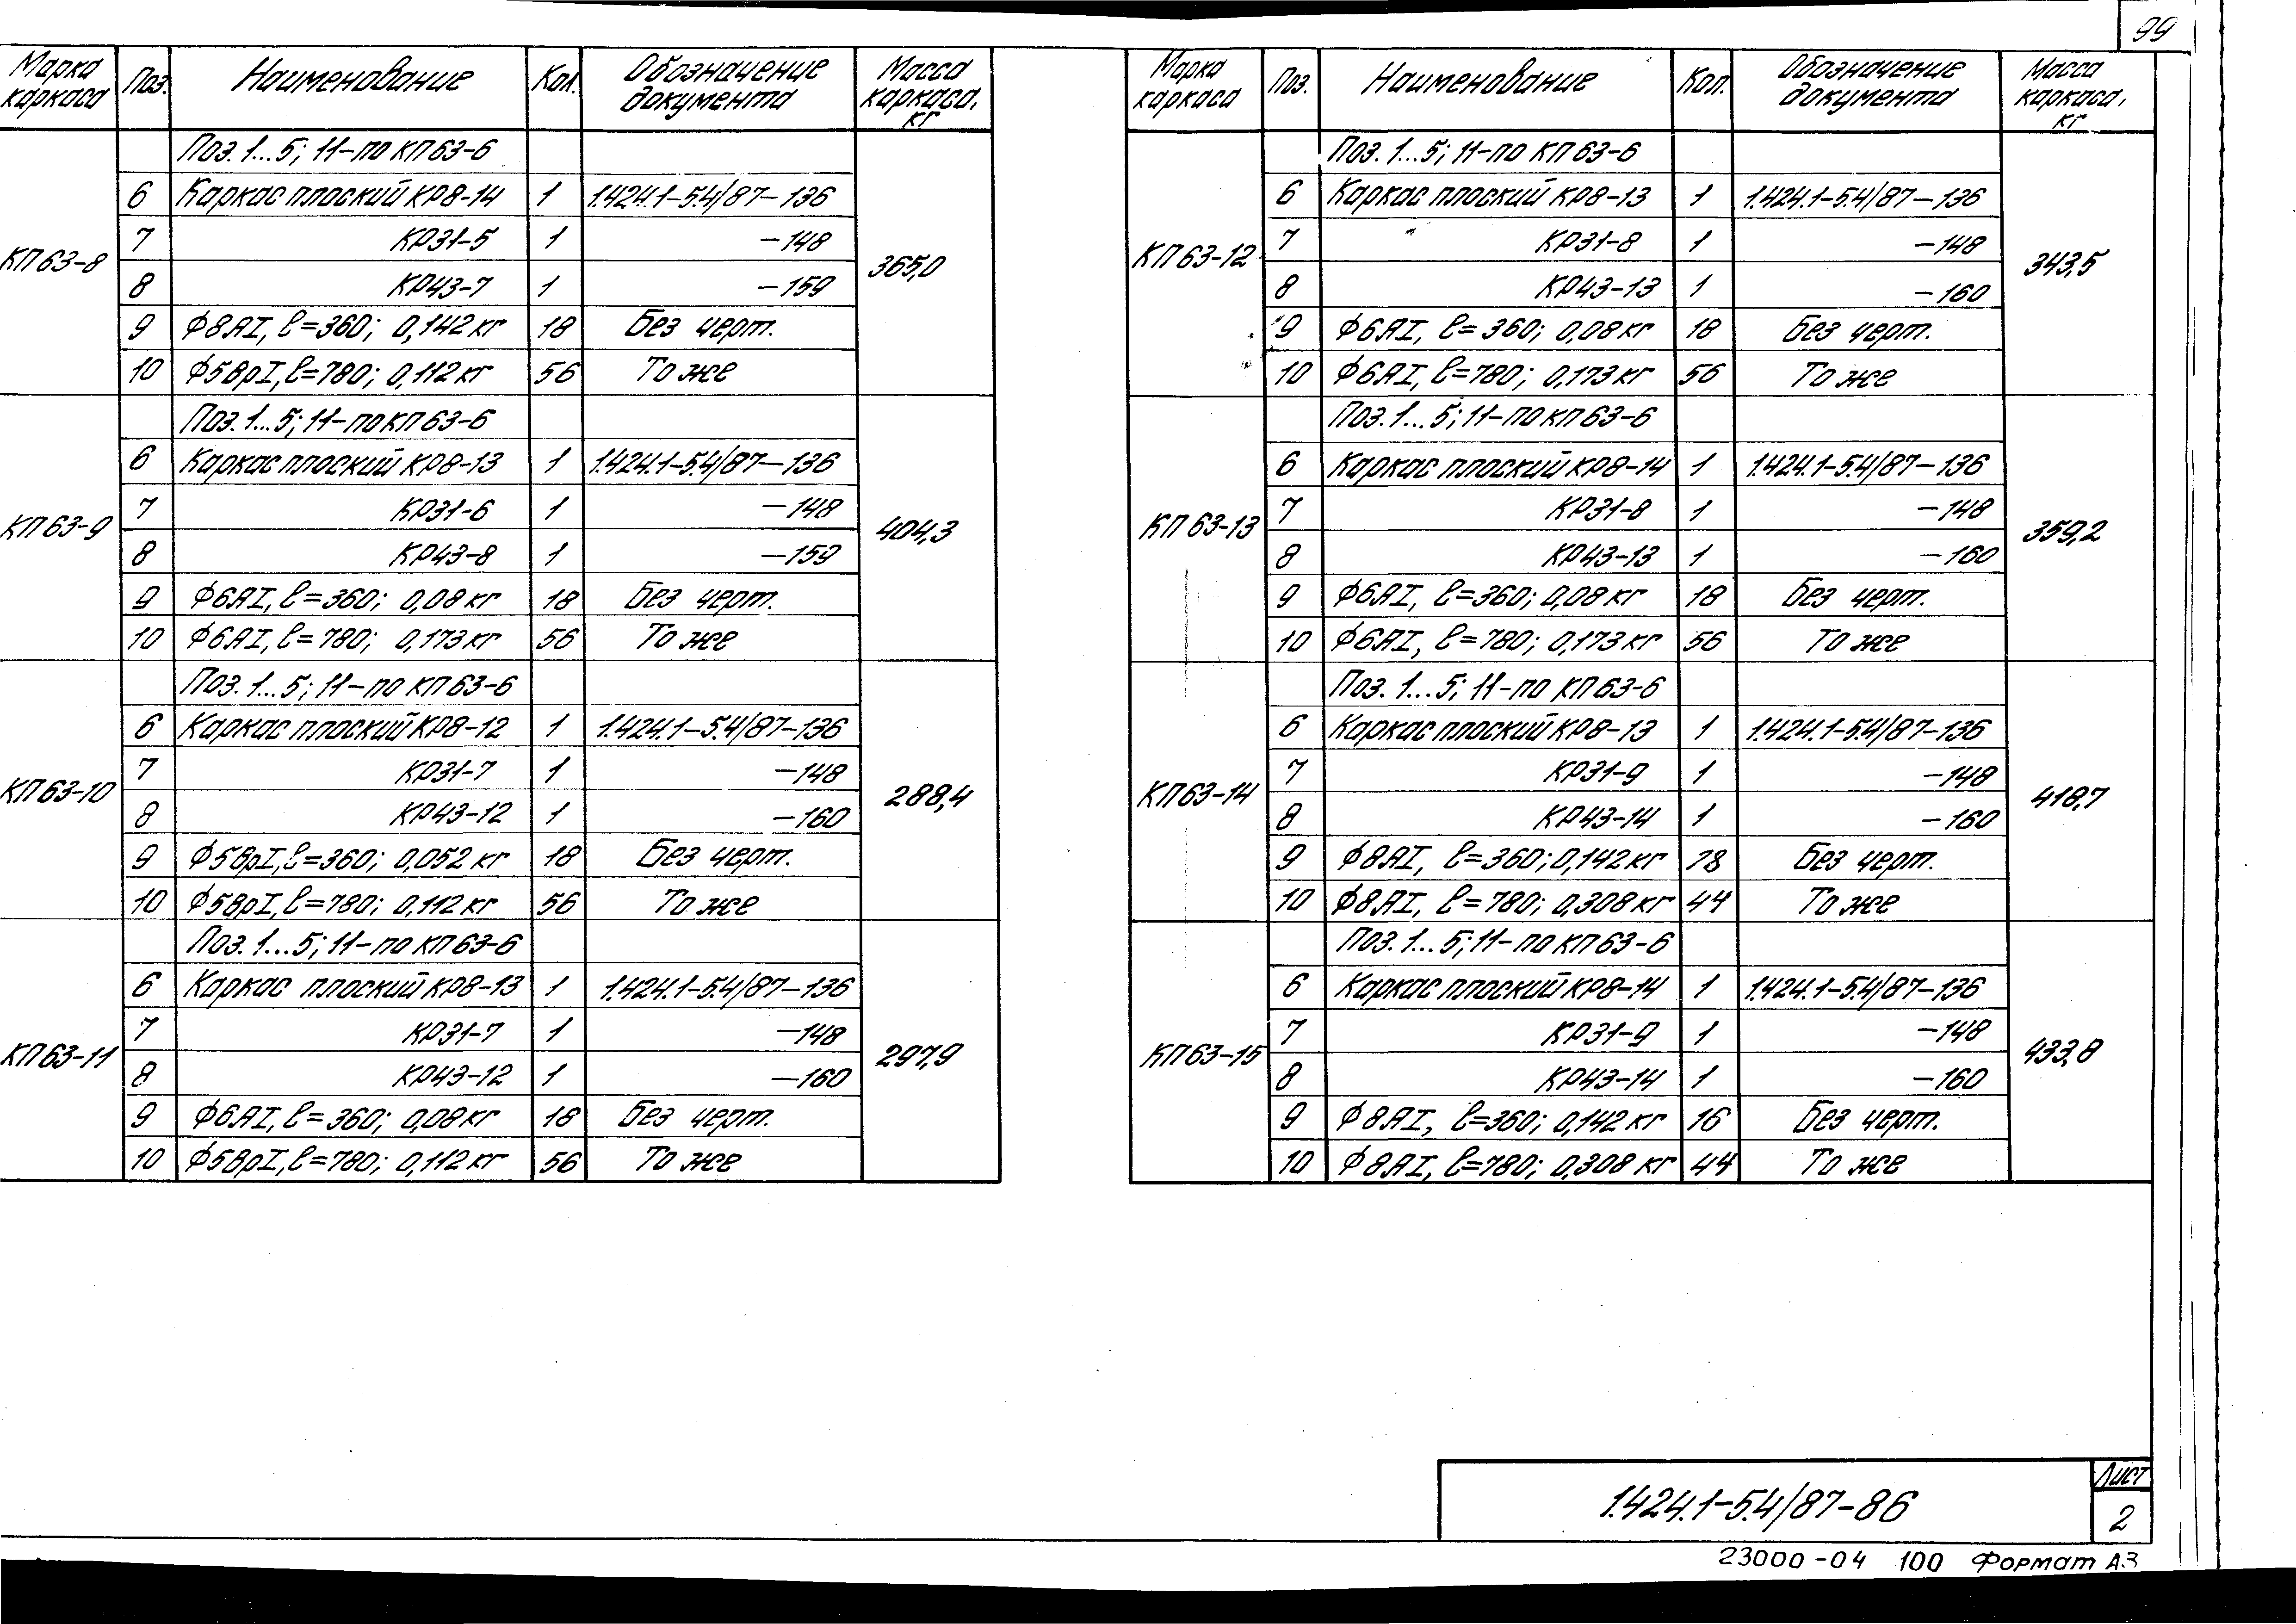 99
Марка каркаса Поз. Наименование Кол. Обозначение документа Масса каркаса, кг
КП63-8 365,0
Поз. 1...5; 11-по КП63-6
6 Каркас плоский КР8-14 1 1.424.1-5.4/87-136
7 КР31-5 1 -148
8 КР43-7 1 -159
9 Ф8АI, ℓ=360; 0,142 кг 18 Без черт.
10 Ф5ВрI, ℓ=780; 0,112 кг 56 То же
КП63-9 404,3
Поз. 1...5; 11-по КП63-6
6 Каркас плоский КР8-13 1 1.424.1-5.4/87-136
7 КР31-6 1 -148
8 КР43-8 1 -159
9 Ф6АI, ℓ=360; 0,08 кг 18 Без черт.
10 Ф6АI, ℓ=780; 0,173 кг 56 То же
КП63-10 288,4
Поз. 1...5; 11-по КП63-6
6 Каркас плоский КР8-12 1 1.424.1-5.4/87-136
7 КР31-7 1 -148
8 КР43-12 1 -160
9 Ф5ВрI, ℓ=360; 0,052 кг 18 Без черт.
10 Ф5ВрI, ℓ=780; 0,112 кг 56 То же
КП63-11 297,9
Поз. 1...5; 11-по КП63-6
6 Каркас плоский КР8-13 1 1.424.1-5.4/87-136
7 КР31-7 1 -148
8 КР43-12 1 -160
9 Ф6АI, ℓ=360; 0,08 кг 18 Без черт.
10 Ф5ВрI, ℓ=780; 0,112 кг 56 То же
Марка каркаса Поз. Наименование Кол. Обозначение документа Масса каркаса, кг
КП63-12 343,5
Поз. 1...5; 11-по КП63-6
6 Каркас плоский КР8-13 1 1.424.1-5.4/87-136
7 КР31-8 1 -148
8 КР43-13 1 -160
9 Ф6АI, ℓ=360; 0,08 кг 18 Без черт.
10 Ф6АI, ℓ=780; 0,173 кг 56 То же
КП63-13 359,2
Поз. 1...5; 11-по КП63-6
6 Каркас плоский КР8-14 1 1.424.1-5.4/87-136
7 КР31-8 1 -148
8 КР43-13 1 -160
9 Ф6АI, ℓ=360; 0,08 кг 18 Без черт.
10 Ф6АI, ℓ=780; 0,173 кг 56 То же
КП63-14 418,7
Поз. 1...5; 11-по КП63-6
6 Каркас плоский КР8-13 1 1.424.1-5.4/87-136
7 КР31-9 1 -148
8 КР43-14 1 -160
9 Ф8АI, ℓ=360; 0,142 кг 18 Без черт.
10 Ф8АI, ℓ=780; 0,308 кг 44 То же
КП63-15 433,8
Поз. 1...5; 11-по КП63-6
6 Каркас плоский КР8-14 1 1.424.1-5.4/87-136
7 КР31-9 1 -148
8 КР43-14 1 -160
9 Ф8АI, ℓ=360; 0,142 кг 16 Без черт.
10 Ф8АI, ℓ=780; 0,308 кг 44 То же
1.424.1-5.4/87-86
Лист
2
23000-04 100 Формат А3